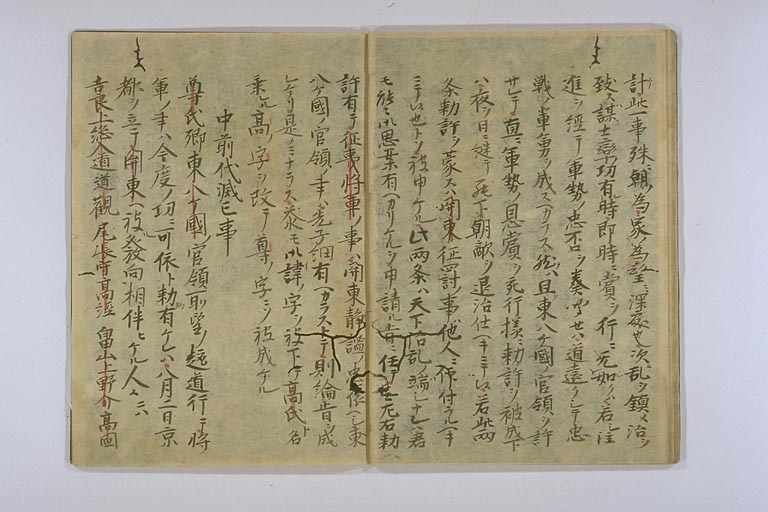 計此一事殊朝為家ノ為望ミ深處也次乱ヲ鎮メ治ヲ
致ス謀士卒功有時即時ニ賞ヲ行ニ死如ハ若シ注
進ヲ經テ軍勢ノ忠否ヲ奏聞セハ道遠クシテ忠
戰ノ軍勇ヲ成スヘカラス然ハ且東八ケ國ノ官領ヲ許
サレテ直ニ軍勢ノ恩賞ヲ執行樣ニ勅許ヲ被成下
ハ夜ヲ日ニ継テ罷下朝敵ヲ退治仕ヘキニテ候若此両
条勅許ヲ蒙スハ関東征罸ノ事他人ニ被仰付ラルヘキ
ニテ候也トソ被申ケル此両条ハ天下治乱ノ端ナレハ君
モ能々御思案有ヘカリケルヲ申請ル旨ニ任テ無左右勅
許有テ征夷将軍ノ事ハ関東靜謐ノ忠ニ依ヘシ東
八ケ國ノ官領ノ事ハ先子細有ヘカラストテ則綸旨ヲ成
レケリ是ノミナラス忝モ御諱ノ字ヲ被下テ高氏ト名
乗ル高ノ字ヲ改テ尊ノ字ニソ被成ケル
中前代滅亡事
尊氏卿東八ケ國官領所望ノ趣道行テ将
軍ノ事ハ今度ノ功ニ可依ト勅有ケレハ八月二日京
都ヲ立テ関東ヘ被發向相伴ヒケル人々ニハ
吉良上総入道道觀 尾張守高經 畠山上野介高国